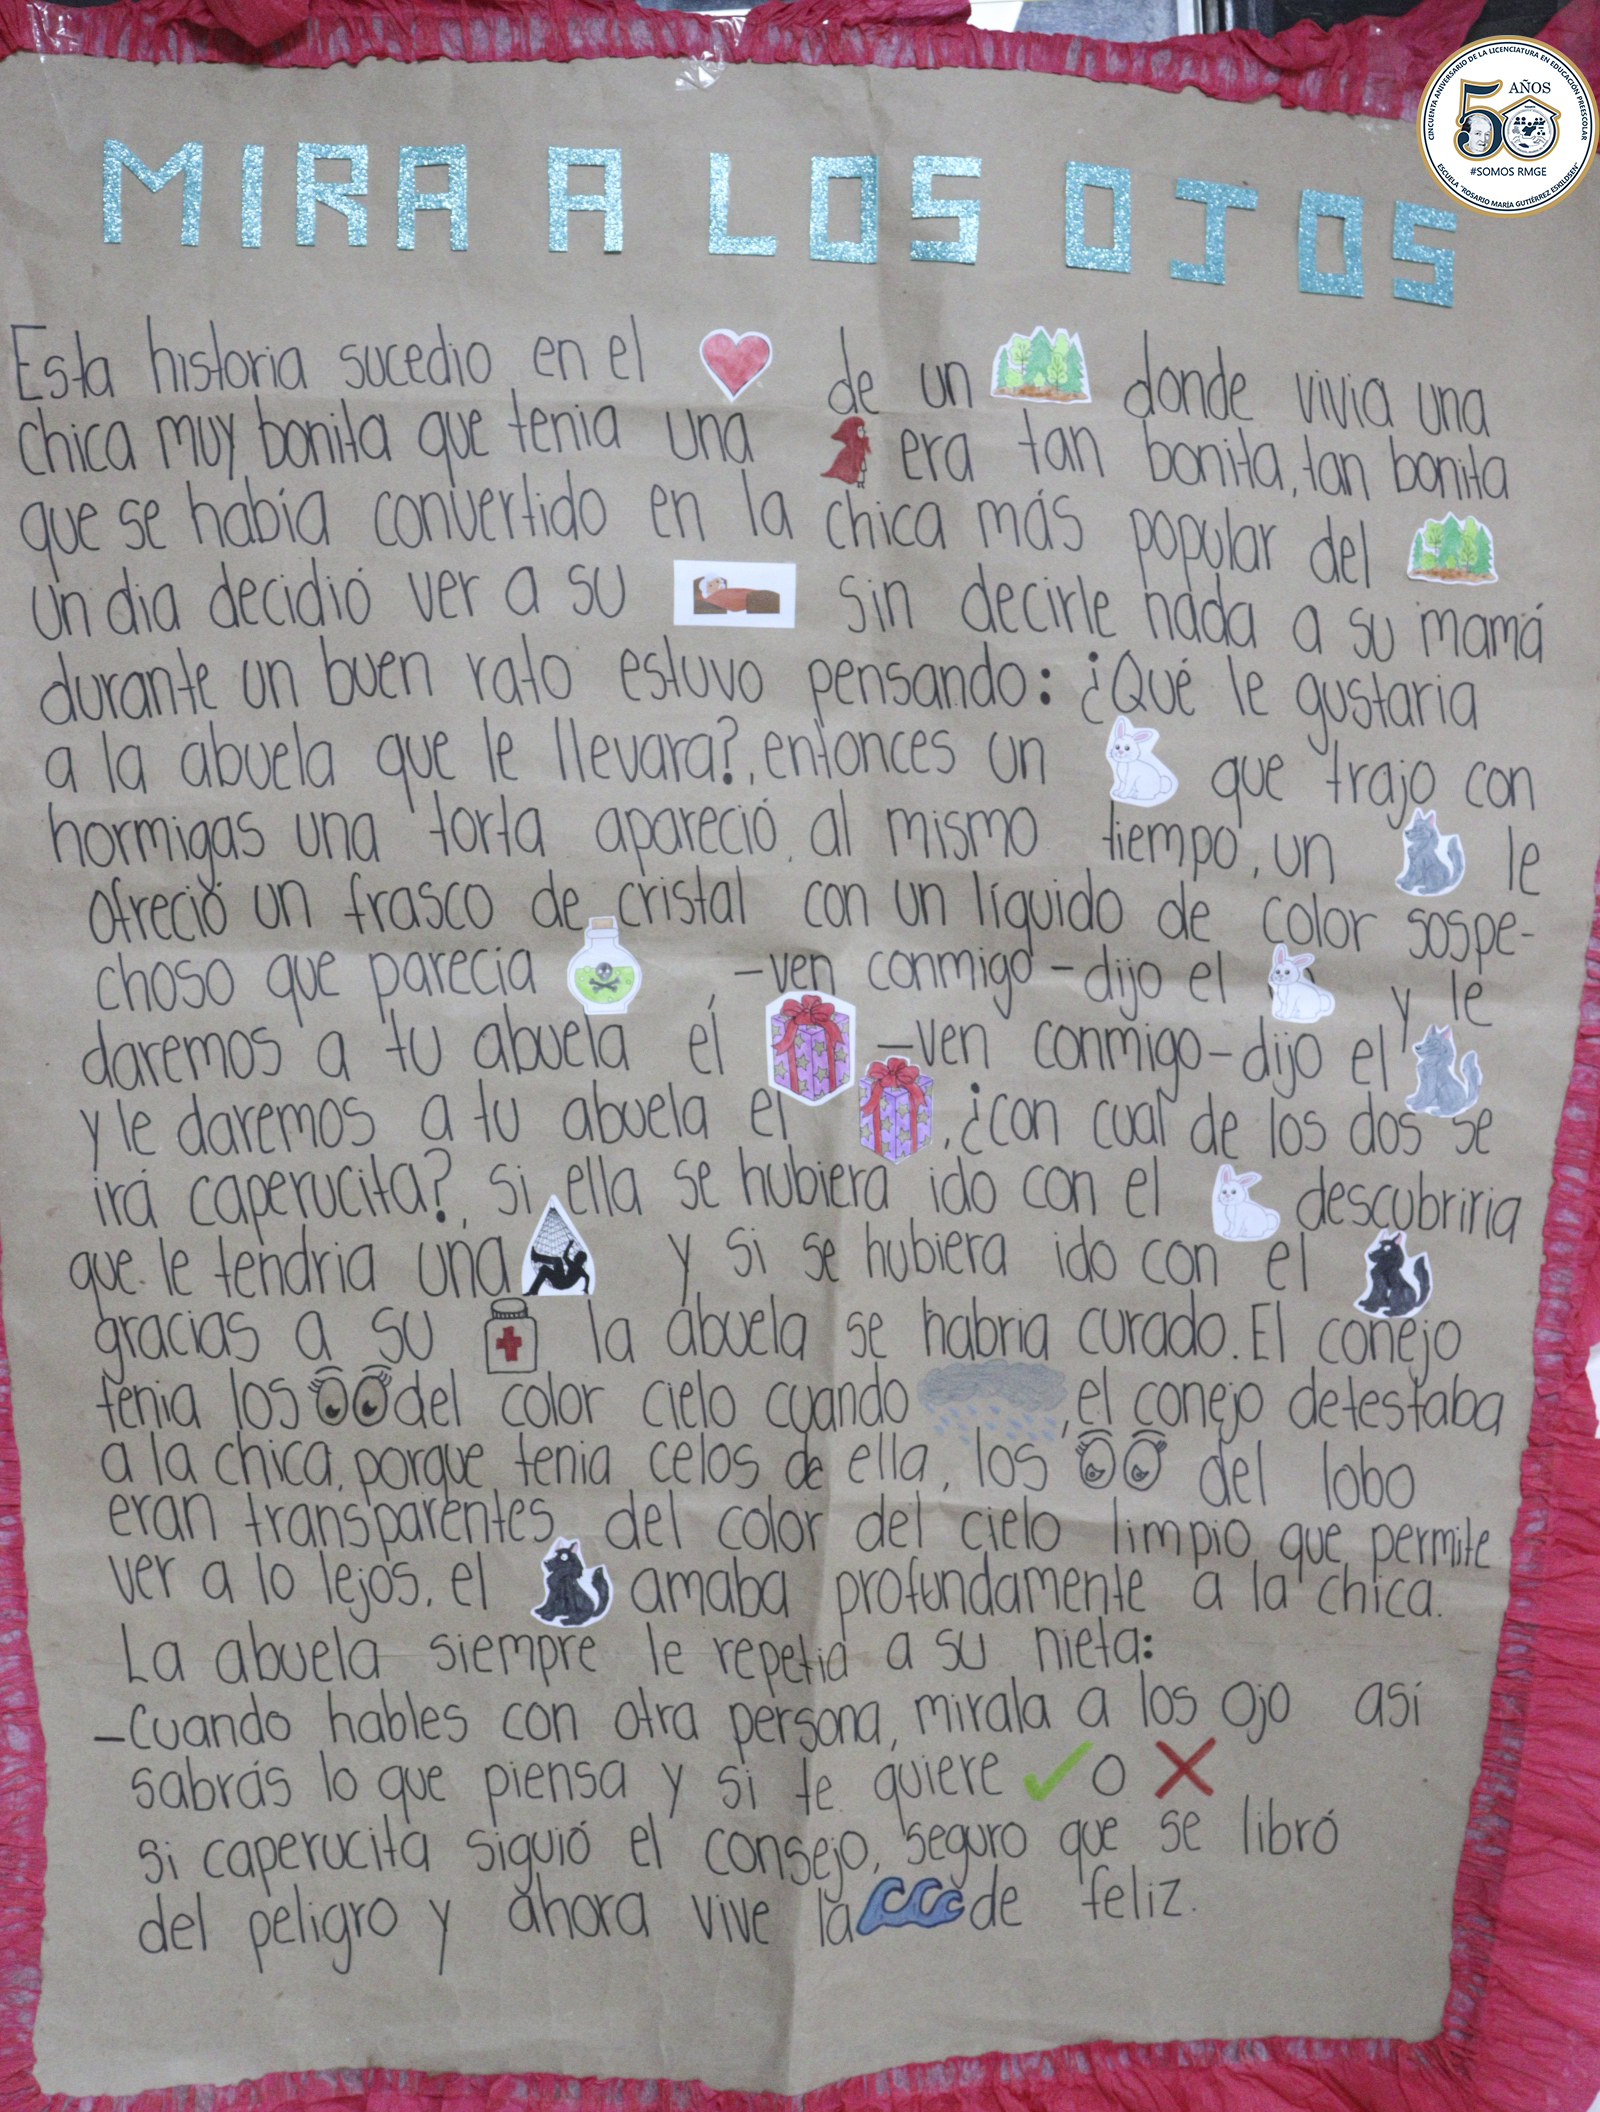 CINCUENTA ANIVERSARIO DE LA LICENCIATURA EN EDUCACIÓN PREESCOLAR
50 AÑOS
#SOMOS RMGE
ESCUELA "ROSARIO MARÍA GUTIÉRREZ ESKILDSEN"
MIRA A LOS OJOS
Esta historia sucedio en el de un donde vivia una
chica muy bonita que tenia una era tan bonita, tan bonita
que se había convertido en la chica más popular del
un dia decidió ver a su sin decirle nada a su mamá
durante un buen rato estuvo pensando: ¿Qué le gustaria
a la abuela que le llevara?, entonces un que trajo con
hormigas una torta apareció, al mismo tiempo, un le
ofreció un frasco de cristal con un líquido de color sospe-
choso que parecia -ven conmigo-dijo el y le
daremos a tu abuela él -ven conmigo-dijo el
y le daremos a tu abuela el , ¿con cual de los dos se
irá caperucita?, si ella se hubiera ido con el descubriria
que le tendria una y si se hubiera ido con el
gracias a su la abuela se habria curado. El conejo
tenia los del color cielo cuando , el conejo detestaba
a la chica, porque tenia celos de ella, los del lobo
eran transparentes del color del cielo limpio que permite
ver a lo lejos, el amaba profundamente a la chica.
La abuela siempre le repetia a su nieta:
-Cuando hables con otra persona, mirala a los ojo así
sabrás lo que piensa y si te quiere o
si caperucita siguió el consejo, seguro que se libró
del peligro y ahora vive la de feliz.